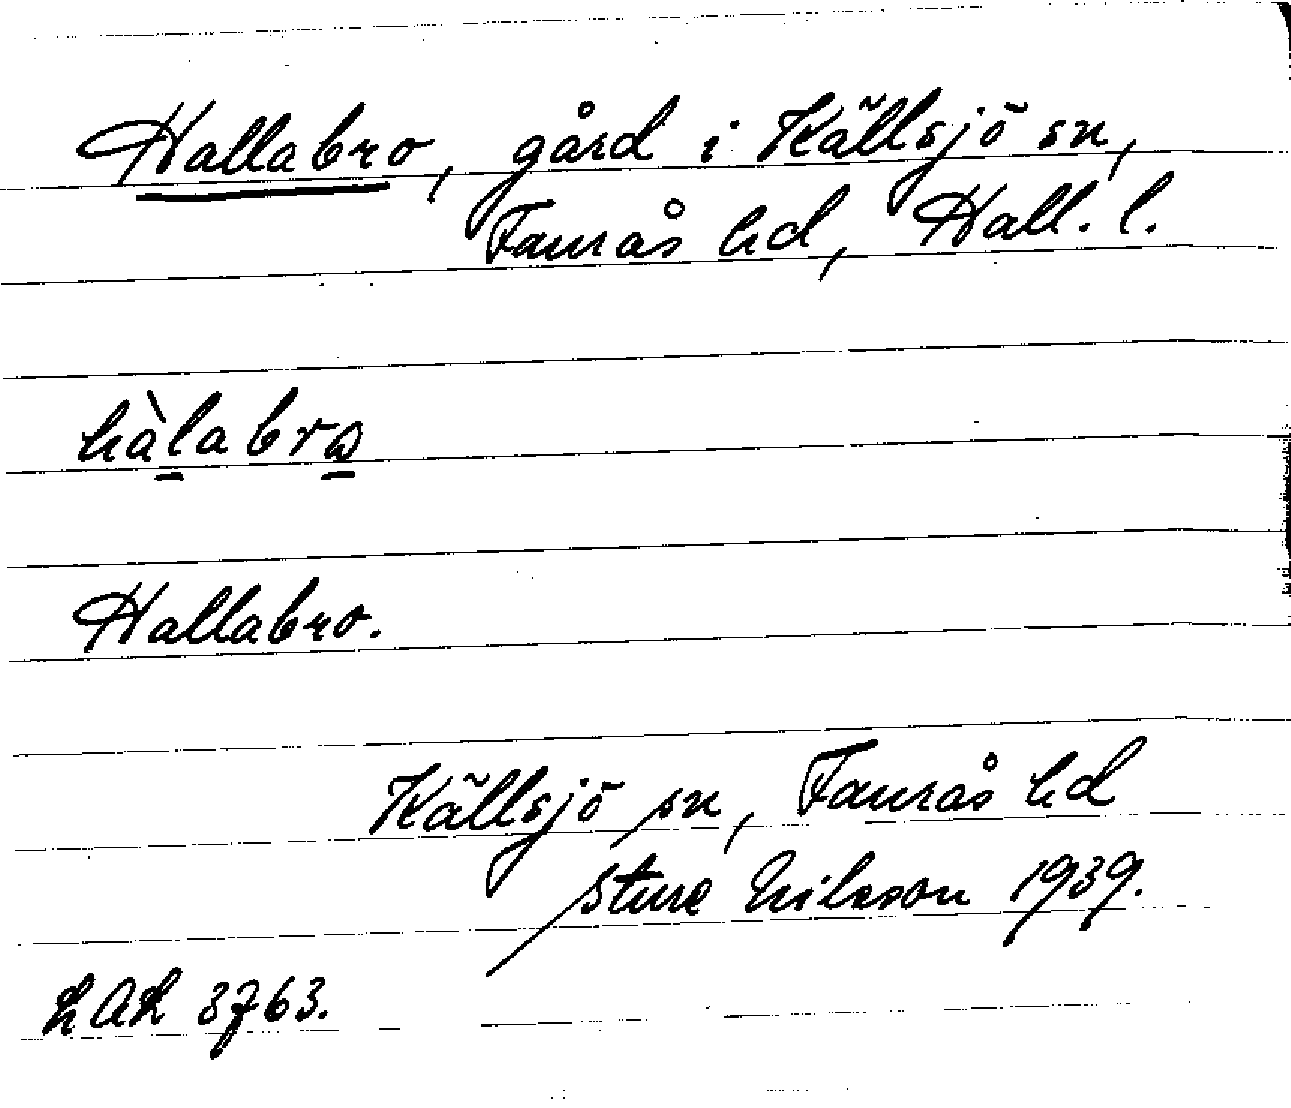 Hallabro, gård i Källsjö sn,
Faurås hd, Hall. l.
hàlabrω
Hallabro.
Källsjö sn, Faurås hd
Sture Nilsson 1939.
LAL 3763.